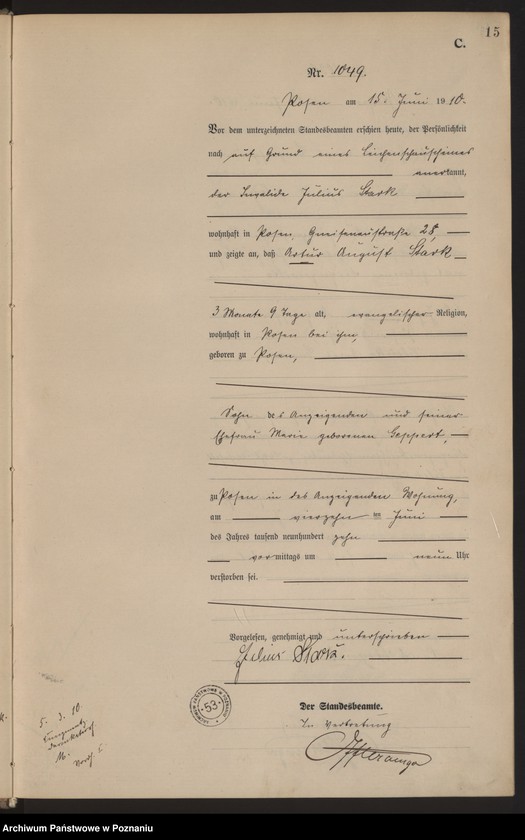 15
C.
Nr. 1049.
Posen am 15. Juni 1910.
Vor dem unterzeichneten Standesbeamten erschien heute, der Persönlichkeit
nach auf Grund eines Leichenschauscheines
anerkannt,
der Invalide Julius Stark
wohnhaft in Posen, Gneisenaustraße
und zeigte an, daß Artur August Stark
3 Monate 9 Tage alt, evangelischer Religion,
wohnhaft in Posen bei ihm,
geboren zu Posen,
Sohn des Anzeigenden und seiner
Ehefrau Marie geborenen Geppert,
zu Posen in des Anzeigenden Wohnung,
am vierzehn ten Juni
des Jahres tausend neunhundert zehn
vormittags um neun Uhr
verstorben sei.
Vorgelesen, genehmigt und unterschrieben
Julius Stark.
Der Standesbeamte.
In Vertretung
53
5. 3. 10
Archiwum Państwowe w Poznaniu